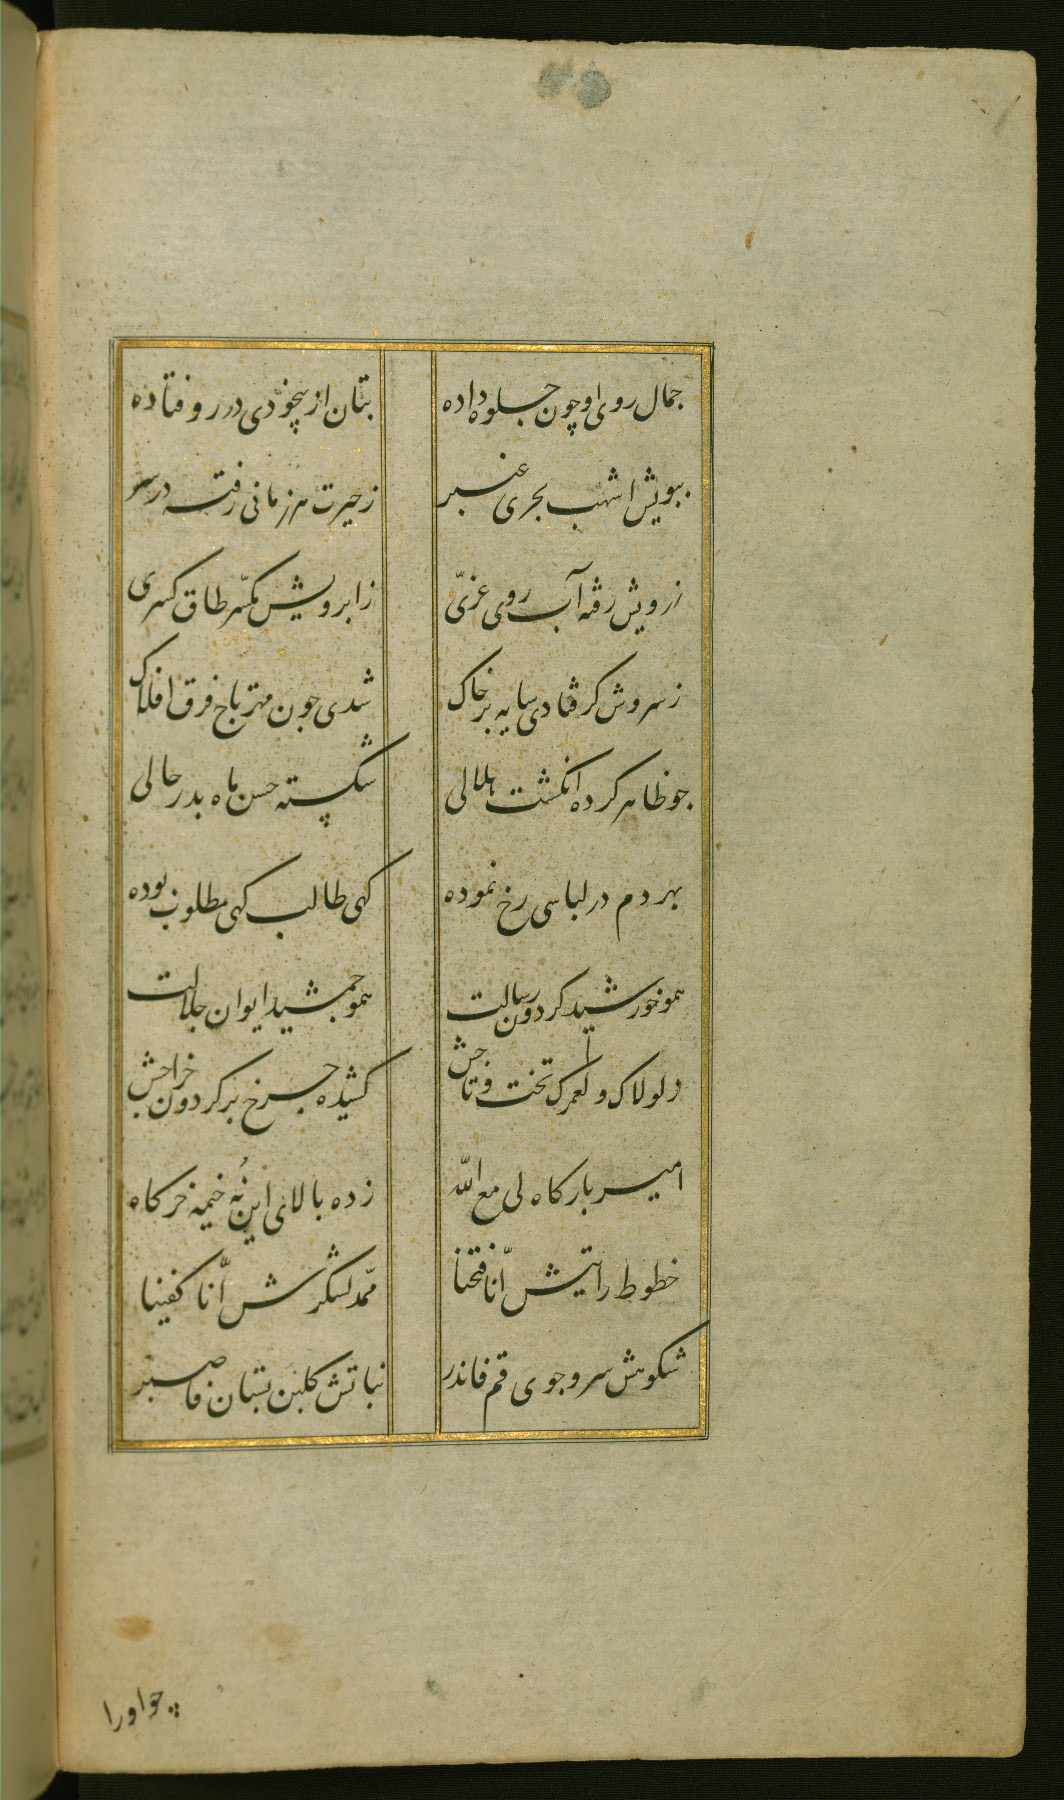 جمال روی او چون جلوه داده بتان از بیخودی در رو فتاده
ببویش اشهب بحری عنبر ز حیرت هر زمانی رفته در سر
ز رویش رفته آب روی عزّی ز ابرویش مکسّر طاق کسری
ز سروش کر فتادی سایه بر خاک شدی جون مهر تاج فرق افلاک
جو ظاهر کرده انکشت هلالی شکسته حسن ماه بدر حالی
بهر دم در لباسی رخ نموده کهی طالب کهی مطلوب بوده
همو خورشید کردون رسالت همو جمشید ایوان جلالت
ز لولاک و لعمرک تخت و تاجش کشیده جرخ بر کردون خراجش
امیر بارکاه لی مع الله زده بالای این نُه خیمه خرکاه
خطوط رایتش انّا فتحنا ممّد لشکرش انّا کفینا
شکوهش سرو جوی قم فانذر نباتش کلبن بستان فاصبر
چو او را